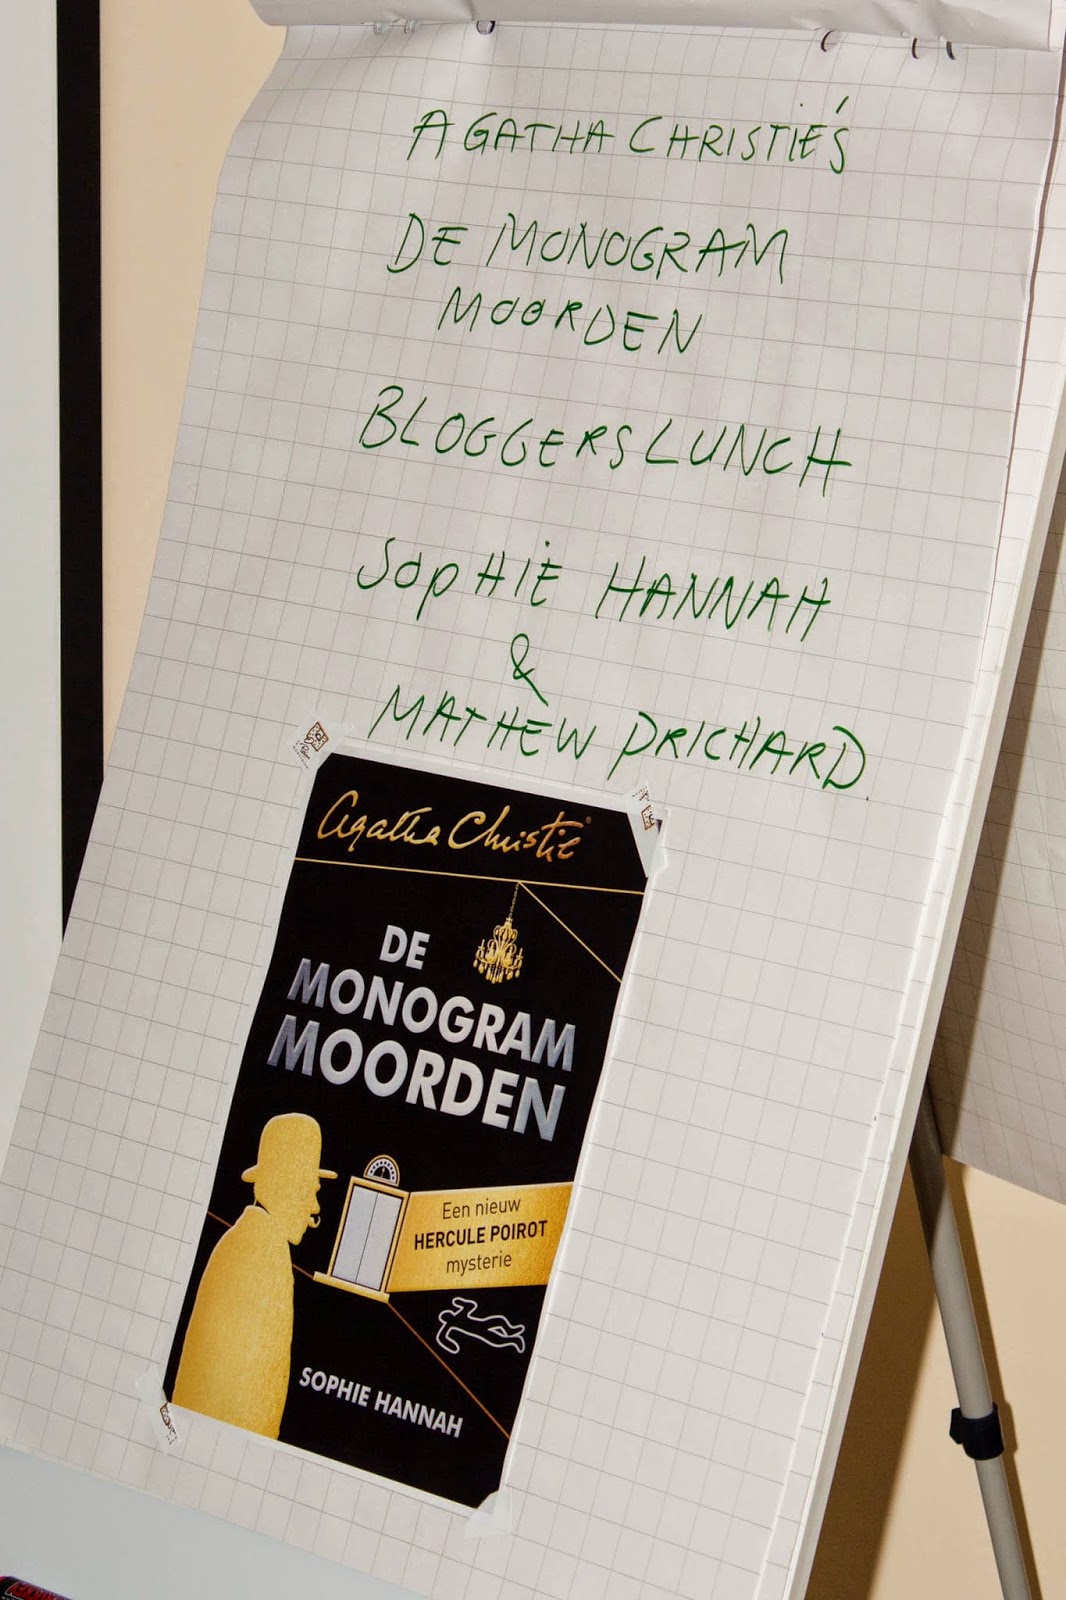 AGATHA CHRISTIE'S
DE MONOGRAM
MOORDEN
BLOGGERSLUNCH
SOPHIE HANNAH
&
MATHEW PRICHARD
Agatha Christie®
DE
MONOGRAM
MOORDEN
Een nieuw
HERCULE POIROT
mysterie
SOPHIE HANNAH